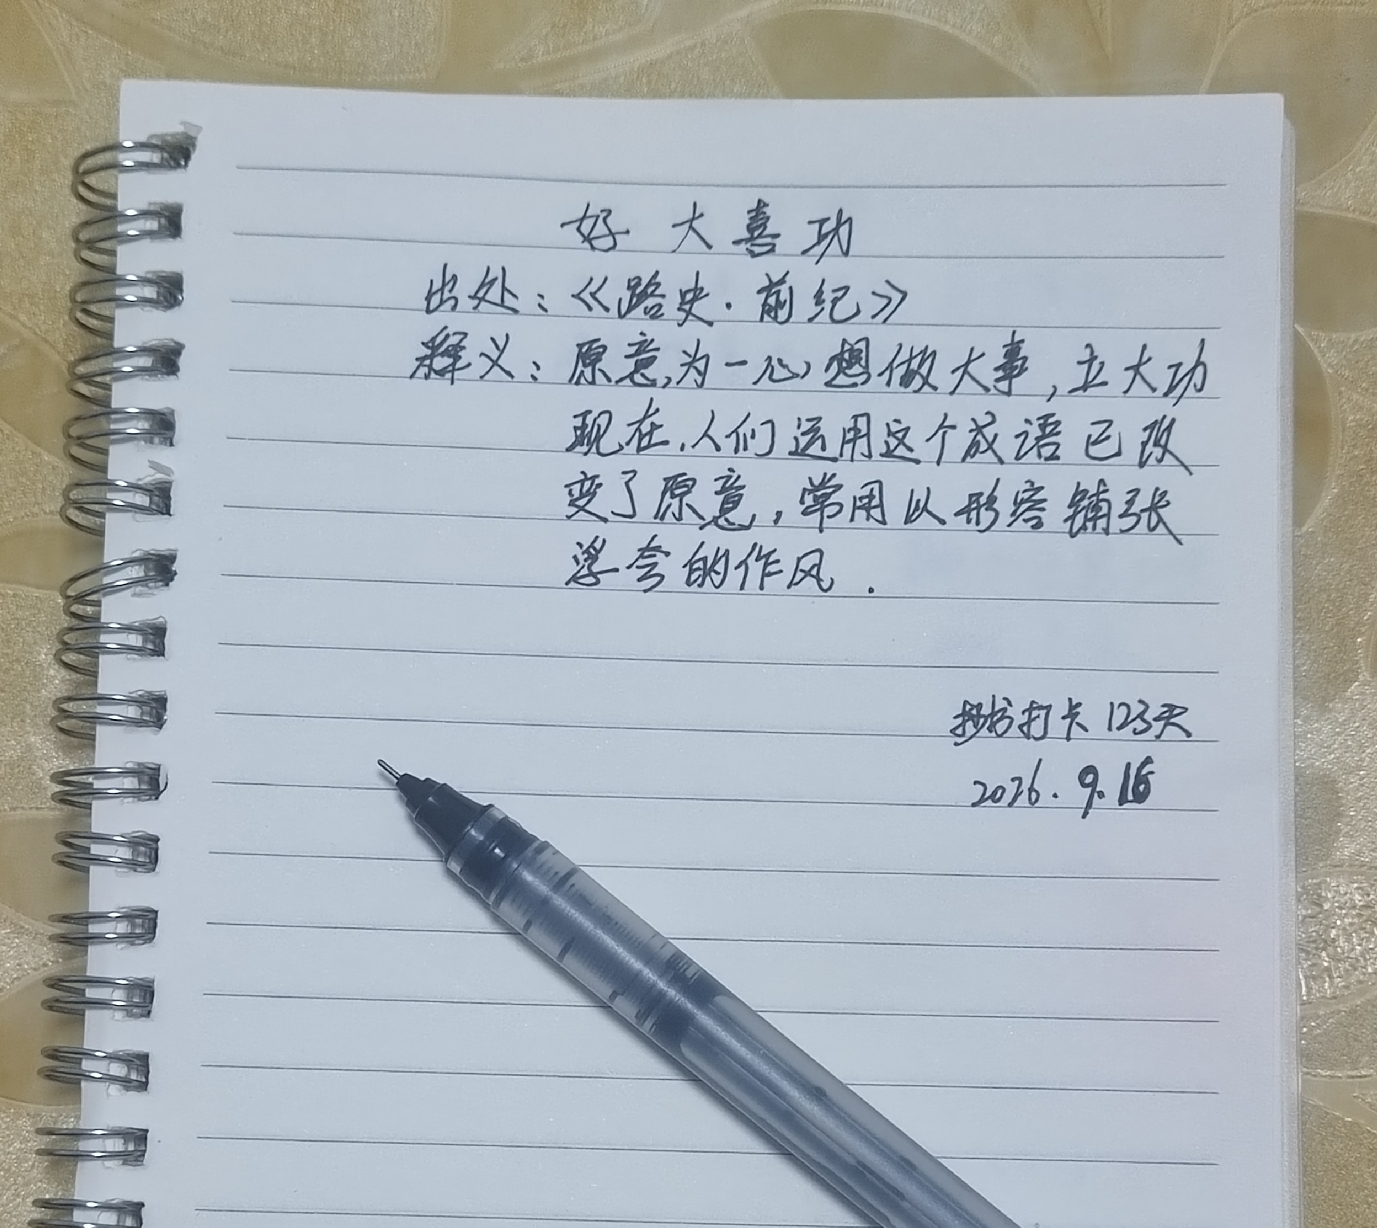 好大喜功
出处：《路史·前纪》
释义：原意，为一心想做大事，立大功
现在，人们运用这个成语已改
变了原意，常用以形容铺张
浮夸的作风.
抄书打卡123天
2026.9.16